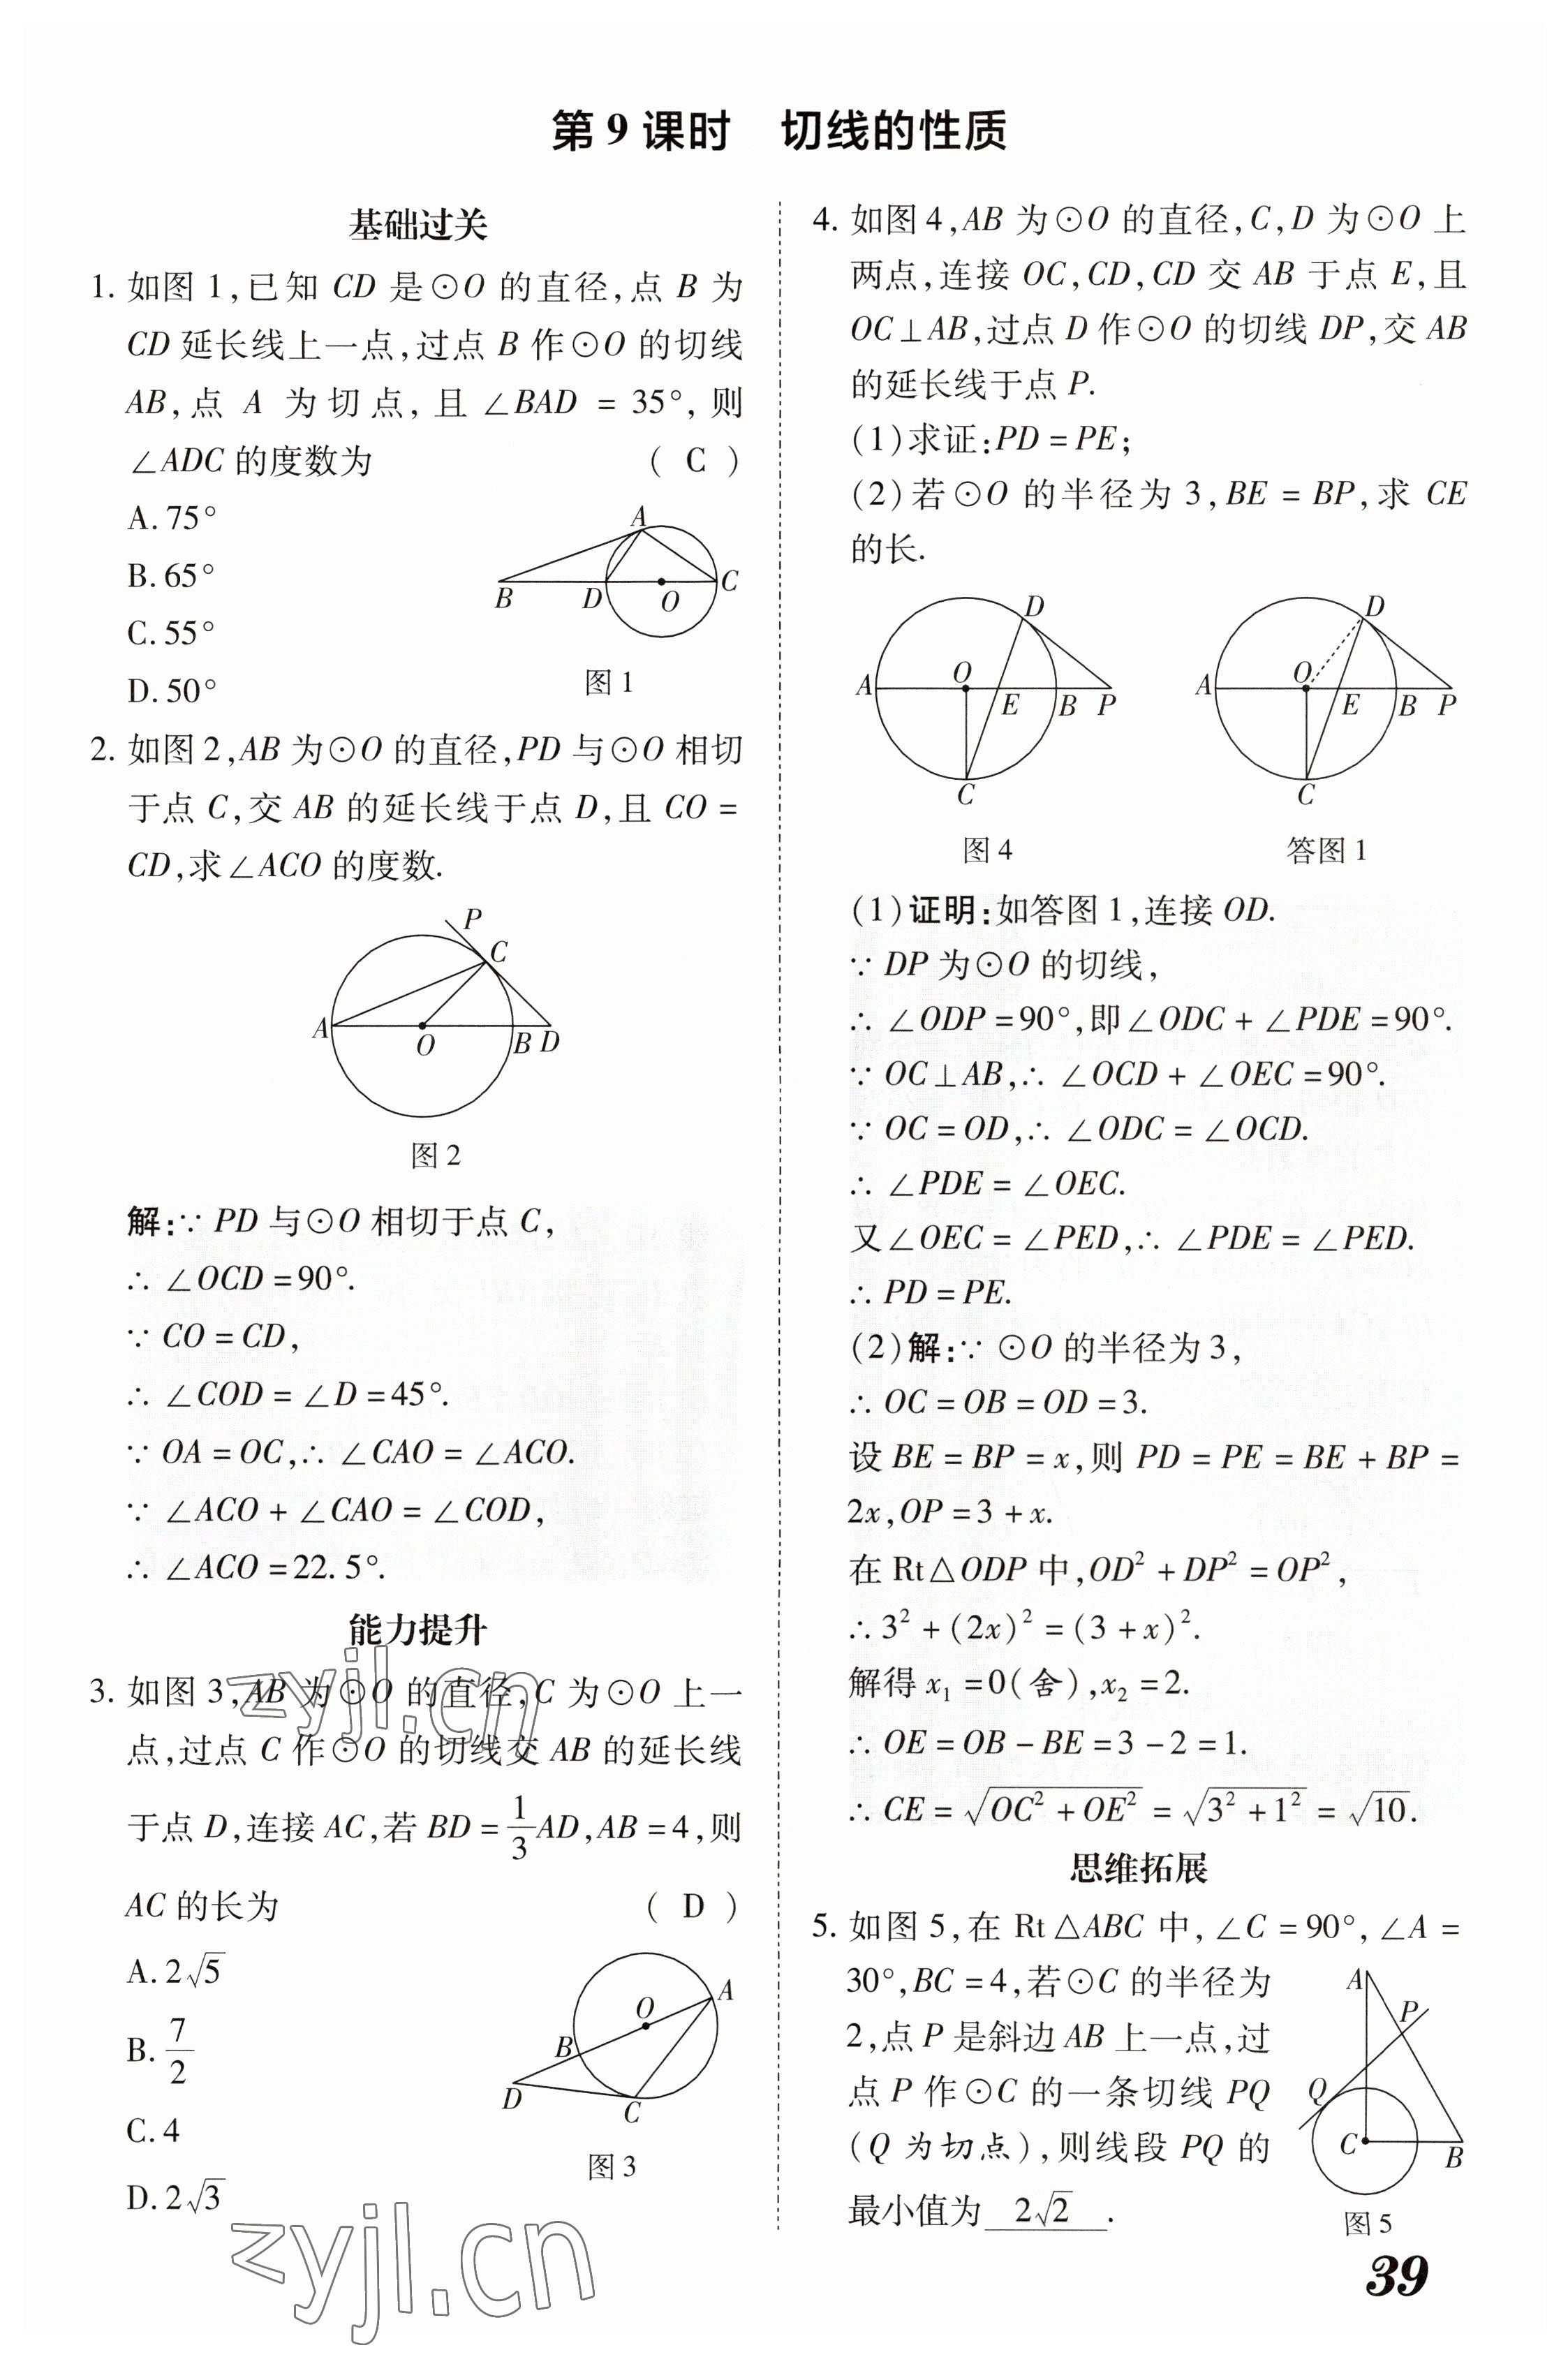 第9课时 切线的性质
基础过关
1. 如图1,已知CD是⊙O的直径,点B为
CD延长线上一点,过点B作⊙O的切线
AB,点A为切点,且∠BAD=35°,则
∠ADC的度数为 ( C )
A. 75°
B. 65°
C. 55°
D. 50°
A
B
D
O
C
图1
2. 如图2,AB为⊙O的直径,PD与⊙O相切
于点C,交AB的延长线于点D,且CO=
CD,求∠ACO的度数.
P
C
A
O
B
D
图2
解:∵PD与⊙O相切于点C,
∴∠OCD=90°.
∵CO=CD,
∴∠COD=∠D=45°.
∵OA=OC,∴∠CAO=∠ACO.
∵∠ACO+∠CAO=∠COD,
∴∠ACO=22.5°.
能力提升
3. 如图3,AB为⊙O的直径,C为⊙O上一
点,过点C作⊙O的切线交AB的延长线
于点D,连接AC,若BD=1/3AD,AB=4,则
AC的长为 ( D )
A. 2√5
B. 7/2
C. 4
D. 2√3
O
A
B
D
C
图3
zyjl.cn
zyjl.cn
4. 如图4,AB为⊙O的直径,C,D为⊙O上
两点,连接OC,CD,CD交AB于点E,且
OC⊥AB,过点D作⊙O的切线DP,交AB
的延长线于点P.
(1)求证:PD=PE;
(2)若⊙O的半径为3,BE=BP,求CE
的长.
D
O
A
E
B
P
C
图4
D
O
A
E
B
P
C
答图1
(1)证明:如答图1,连接OD.
∵DP为⊙O的切线,
∴∠ODP=90°,即∠ODC+∠PDE=90°.
∵OC⊥AB,∴∠OCD+∠OEC=90°.
∵OC=OD,∴∠ODC=∠OCD.
∴∠PDE=∠OEC.
又∠OEC=∠PED,∴∠PDE=∠PED.
∴PD=PE.
(2)解:∵⊙O的半径为3,
∴OC=OB=OD=3.
设BE=BP=x,则PD=PE=BE+BP=
2x,OP=3+x.
在Rt△ODP中,OD²+DP²=OP²,
∴3²+(2x)²=(3+x)².
解得x₁=0(舍),x₂=2.
∴OE=OB-BE=3-2=1.
∴CE=√(OC²+OE²)=√(3²+1²)=√10.
思维拓展
5. 如图5,在Rt△ABC中,∠C=90°,∠A=
30°,BC=4,若⊙C的半径为
2,点P是斜边AB上一点,过
点P作⊙C的一条切线PQ
(Q为切点),则线段PQ的
最小值为 2√2 .
A
P
Q
C
B
图5
39